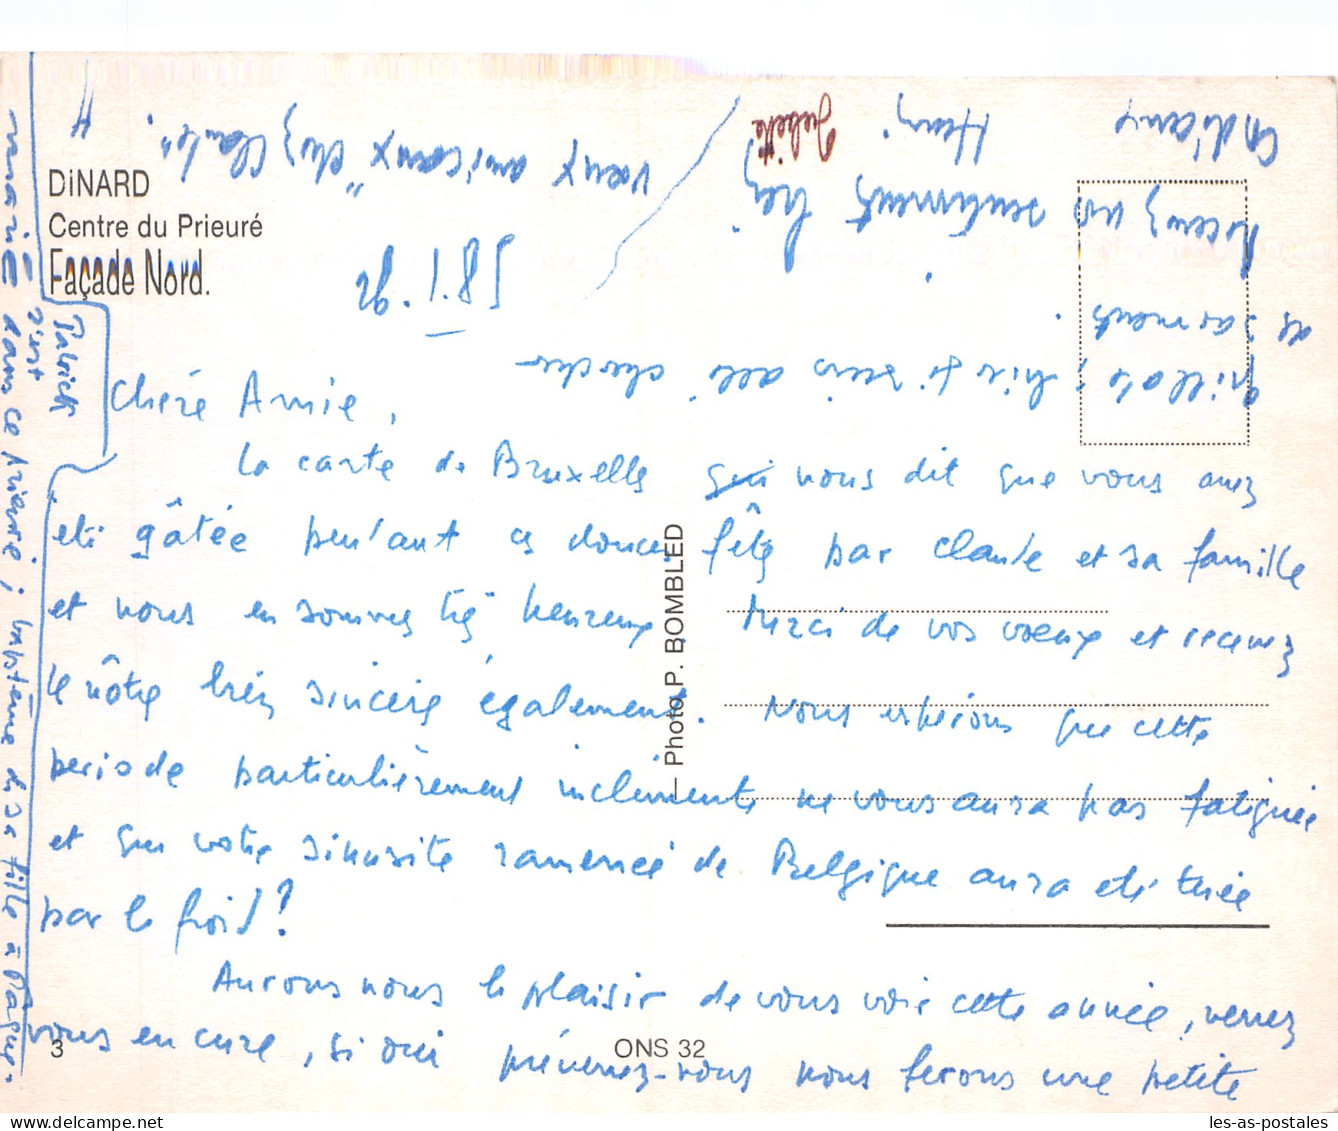 DiNARD
Centre du Prieuré
Façade Nord.
18.1.92
Chère Amie,
la carte de Bruxelles nous dit que vous avez
été gâtée pendant ces douces fêtes par Claude et sa famille
et nous en sommes très heureux. Merci de vos voeux et recevez
le nôtre très sincère également. Nous espérons que cette
periode particulièrement inclemente ne vous aura pas fatiguée
et que votre sinusite ramenée de Belgique aura été tuée
par le froid ?
Aurons nous le plaisir de vous voir cette année, venez
vous en cure, si oui prévenez-vous nous ferons une petite
grillade ; hier je suis allé chercher
des sarments.
Recevez nos sentiments très
cordiaux
Henri
Juliette
voeux amicaux "chez Claude".
Patrick
s'est
marié dans ce prieuré ; baptême de sa fille à Paques
Photo P. BOMBLED
3
ONS 32
les-as-postales